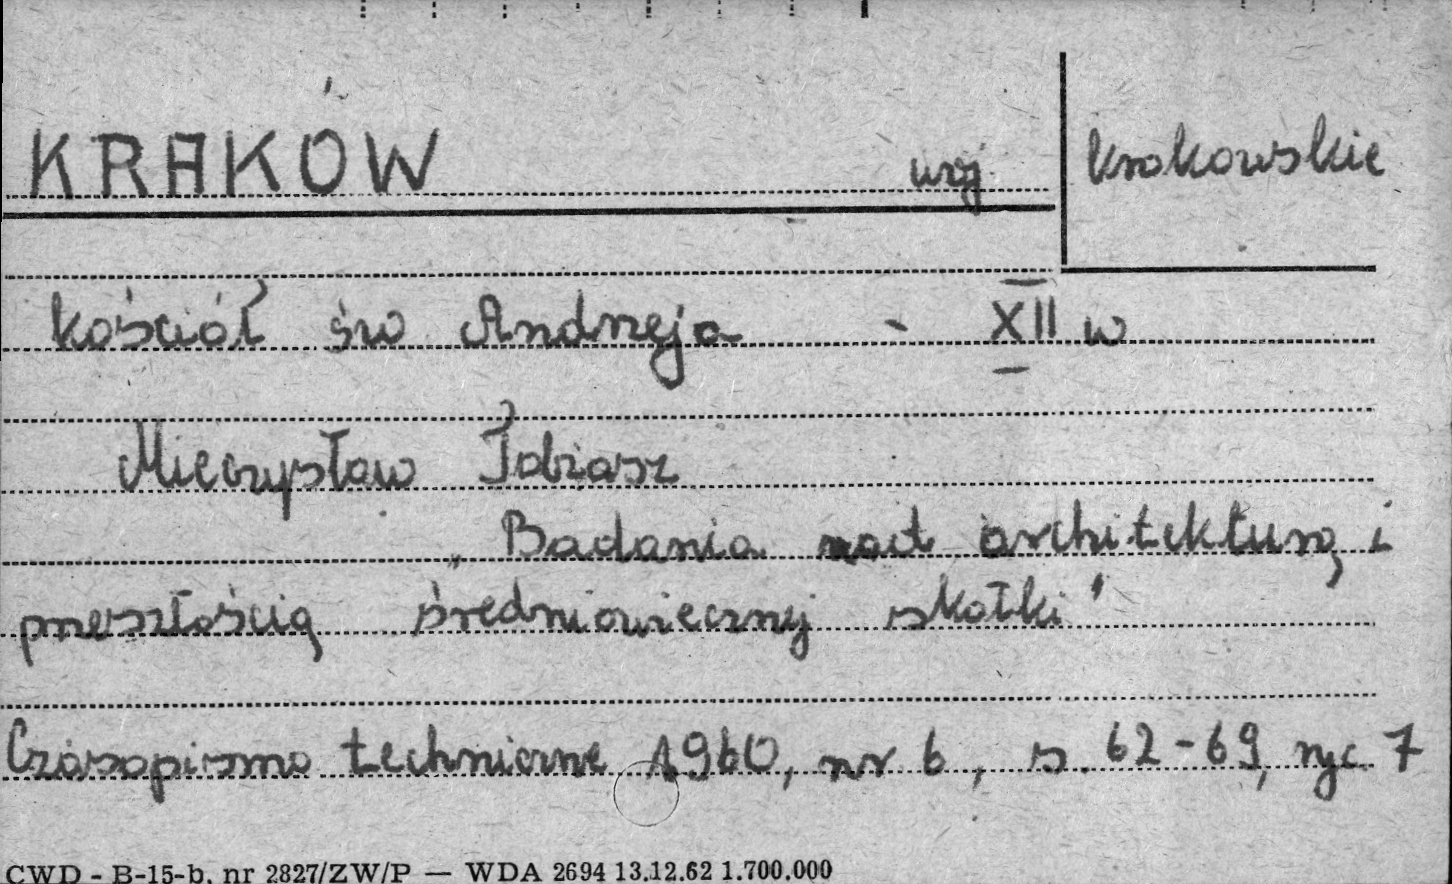 KRAKÓW woj. krakowskie
kościół św Andrzeja - XII w
Mieczysław Tobiasz
„Badania nad architekturą i
przeszłością średniowiecznej skałki"
Czasopismo techniczne 1960, nr 6, s. 62-69, ryc. 7
CWD - B-15-b, nr 2827/ZW/P — WDA 2694 13.12.62 1.700.000